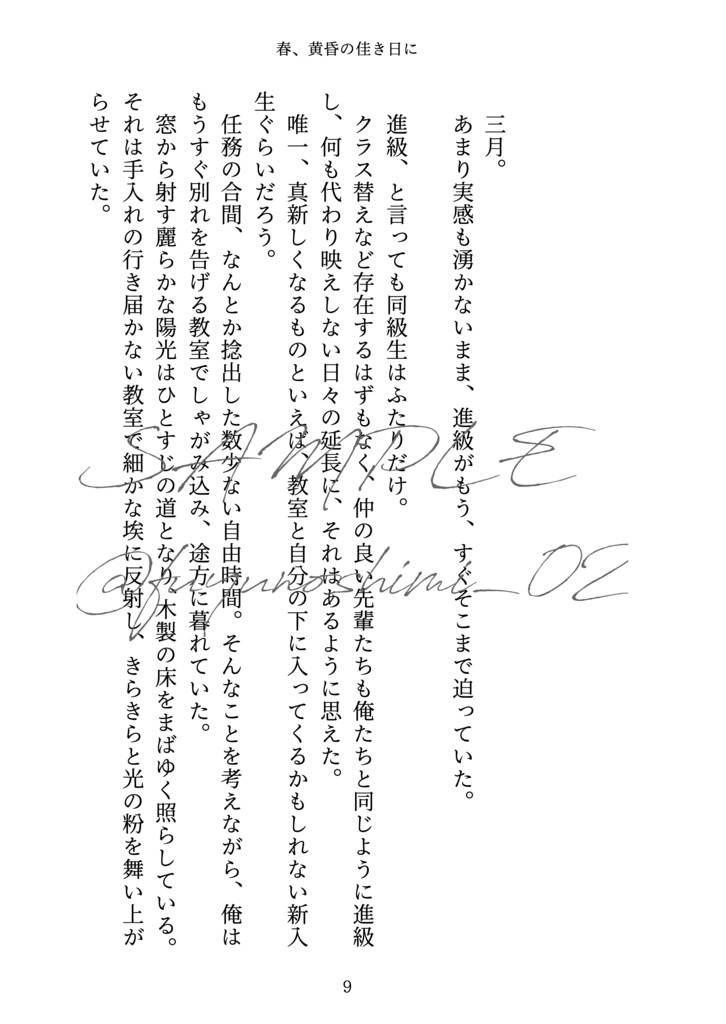 春、黄昏の佳き日に
三月。
あまり実感も湧かないまま、進級がもう、すぐそこまで迫っていた。
進級、と言っても同級生はふたりだけ。
クラス替えなど存在するはずもなく、仲の良い先輩たちも俺たちと同じように進級
し、何も代わり映えしない日々の延長に、それはあるように思えた。
唯一、真新しくなるものといえば、教室と自分の下に入ってくるかもしれない新入
生ぐらいだろう。
任務の合間、なんとか捻出した数少ない自由時間。そんなことを考えながら、俺は
もうすぐ別れを告げる教室でしゃがみ込み、途方に暮れていた。
窓から射す麗らかな陽光はひとすじの道となり、木製の床をまばゆく照らしている。
それは手入れの行き届かない教室で細かな埃に反射し、きらきらと光の粉を舞い上が
らせていた。
SAMPLE
@fuyunoshimi_02
9